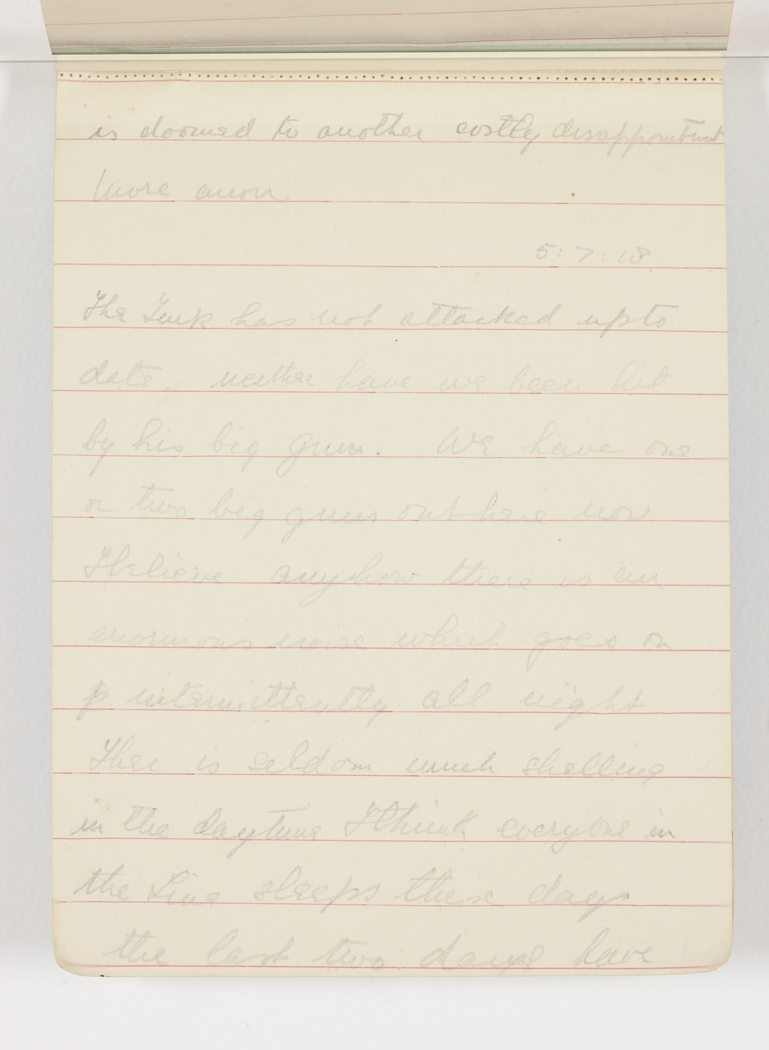 is doomed to another costly disappointment
More anon
5:7:18
The Turk has not attacked up to
date, neither have we been hit
by his big guns. We have one
or two big guns out here now
I believe anyhow there is an
enormous noise which goes on
intermittently all night
There is seldom much shelling
in the daytime I think everyone in
the Line sleeps these days
the last two days have